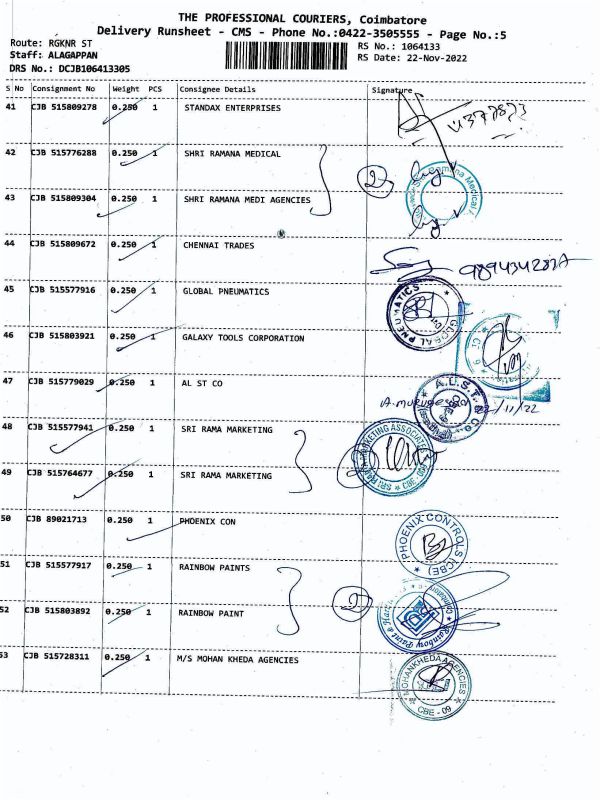 THE PROFESSIONAL COURIERS, Coimbatore
Delivery Runsheet - CMS - Phone No.:0422-3505555 - Page No.:5
Route: RGKNR ST
Staff: ALAGAPPAN
DRS No.: DCJB106413305
RS No.: 1064133
RS Date: 22-Nov-2022
S No Consignment No Weight PCS Consignee Details Signature
41 CJB 515809278 0.250 1 STANDAX ENTERPRISES
42 CJB 515776288 0.250 1 SHRI RAMANA MEDICAL
2
43 CJB 515809304 0.250 1 SHRI RAMANA MEDI AGENCIES
44 CJB 515809672 0.250 1 CHENNAI TRADES
45 CJB 515577916 0.250 1 GLOBAL PNEUMATICS
GLOBAL PNEUMATICS
46 CJB 515803921 0.250 1 GALAXY TOOLS CORPORATION
47 CJB 515779029 0.250 1 AL ST CO
A.L.S.T. & Co
22/11/22
48 CJB 515577941 0.250 1 SRI RAMA MARKETING
SRI RAMA MARKETING ASSOCIATES
49 CJB 515764677 0.250 1 SRI RAMA MARKETING
50 CJB 89021713 0.250 1 PHOENIX CON
PHOENIX CONTROLS (CBE)
51 CJB 515577917 0.250 1 RAINBOW PAINTS
2
52 CJB 515803892 0.250 1 RAINBOW PAINT
53 CJB 515728311 0.250 1 M/S MOHAN KHEDA AGENCIES
MOHANKHEDA AGENCIES
CBE - 09